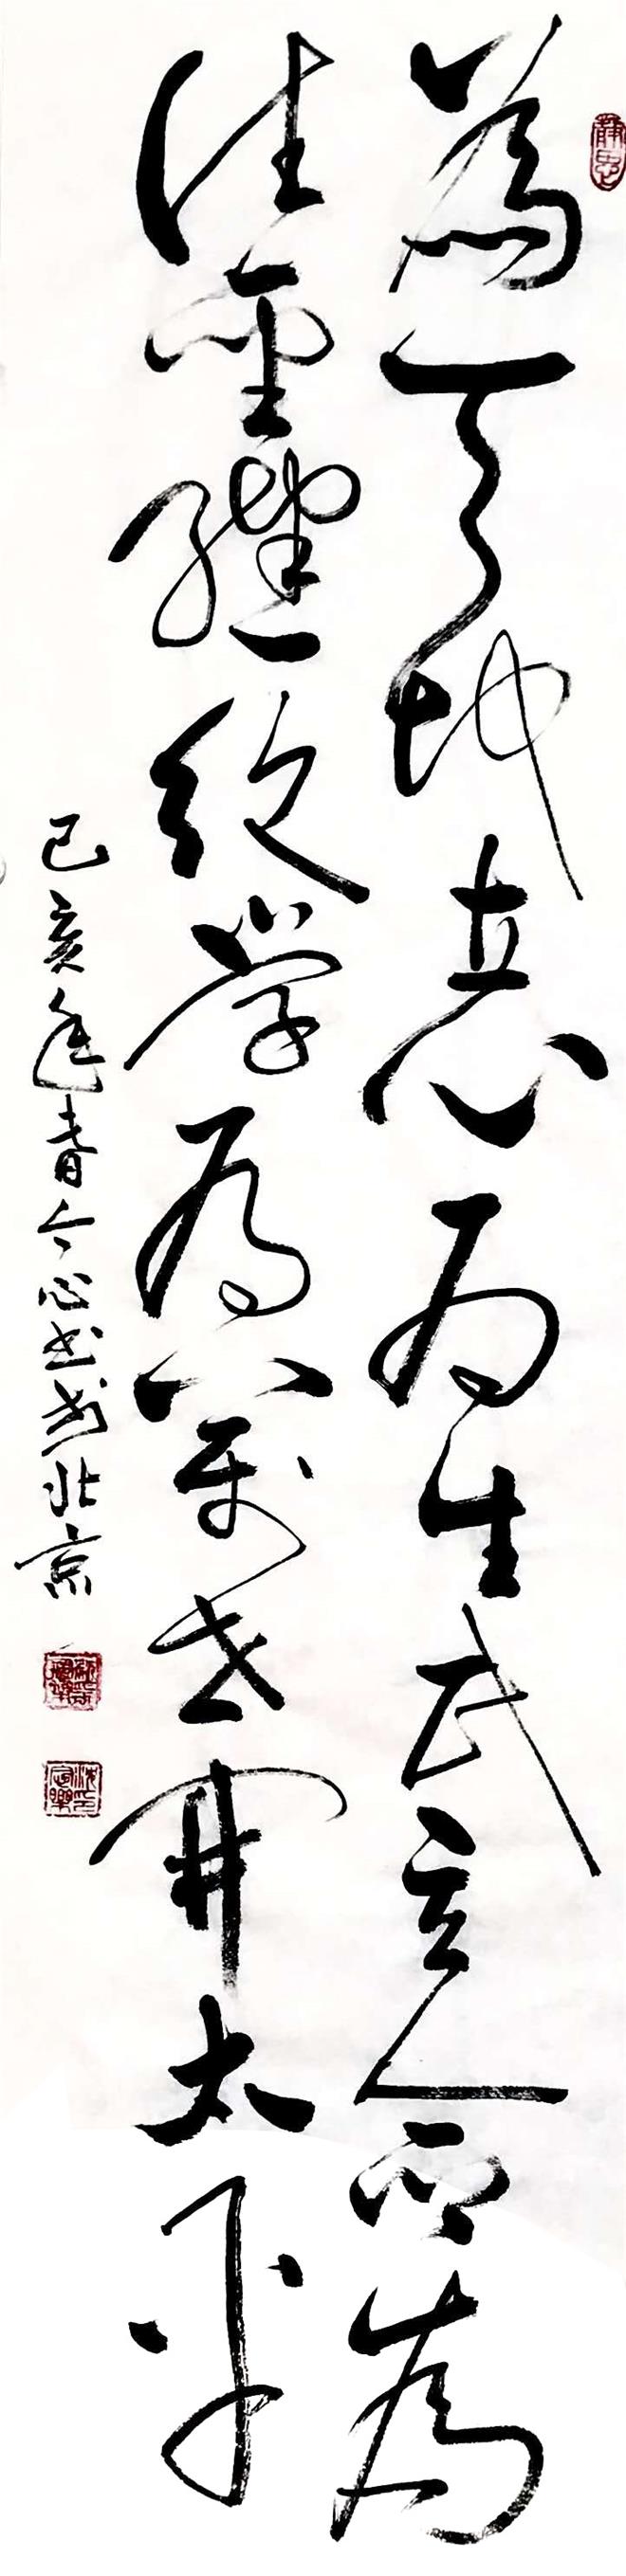 静思
為天地立心為生民立命為
往聖繼絕學為萬世開太平
己亥年今心書於北京